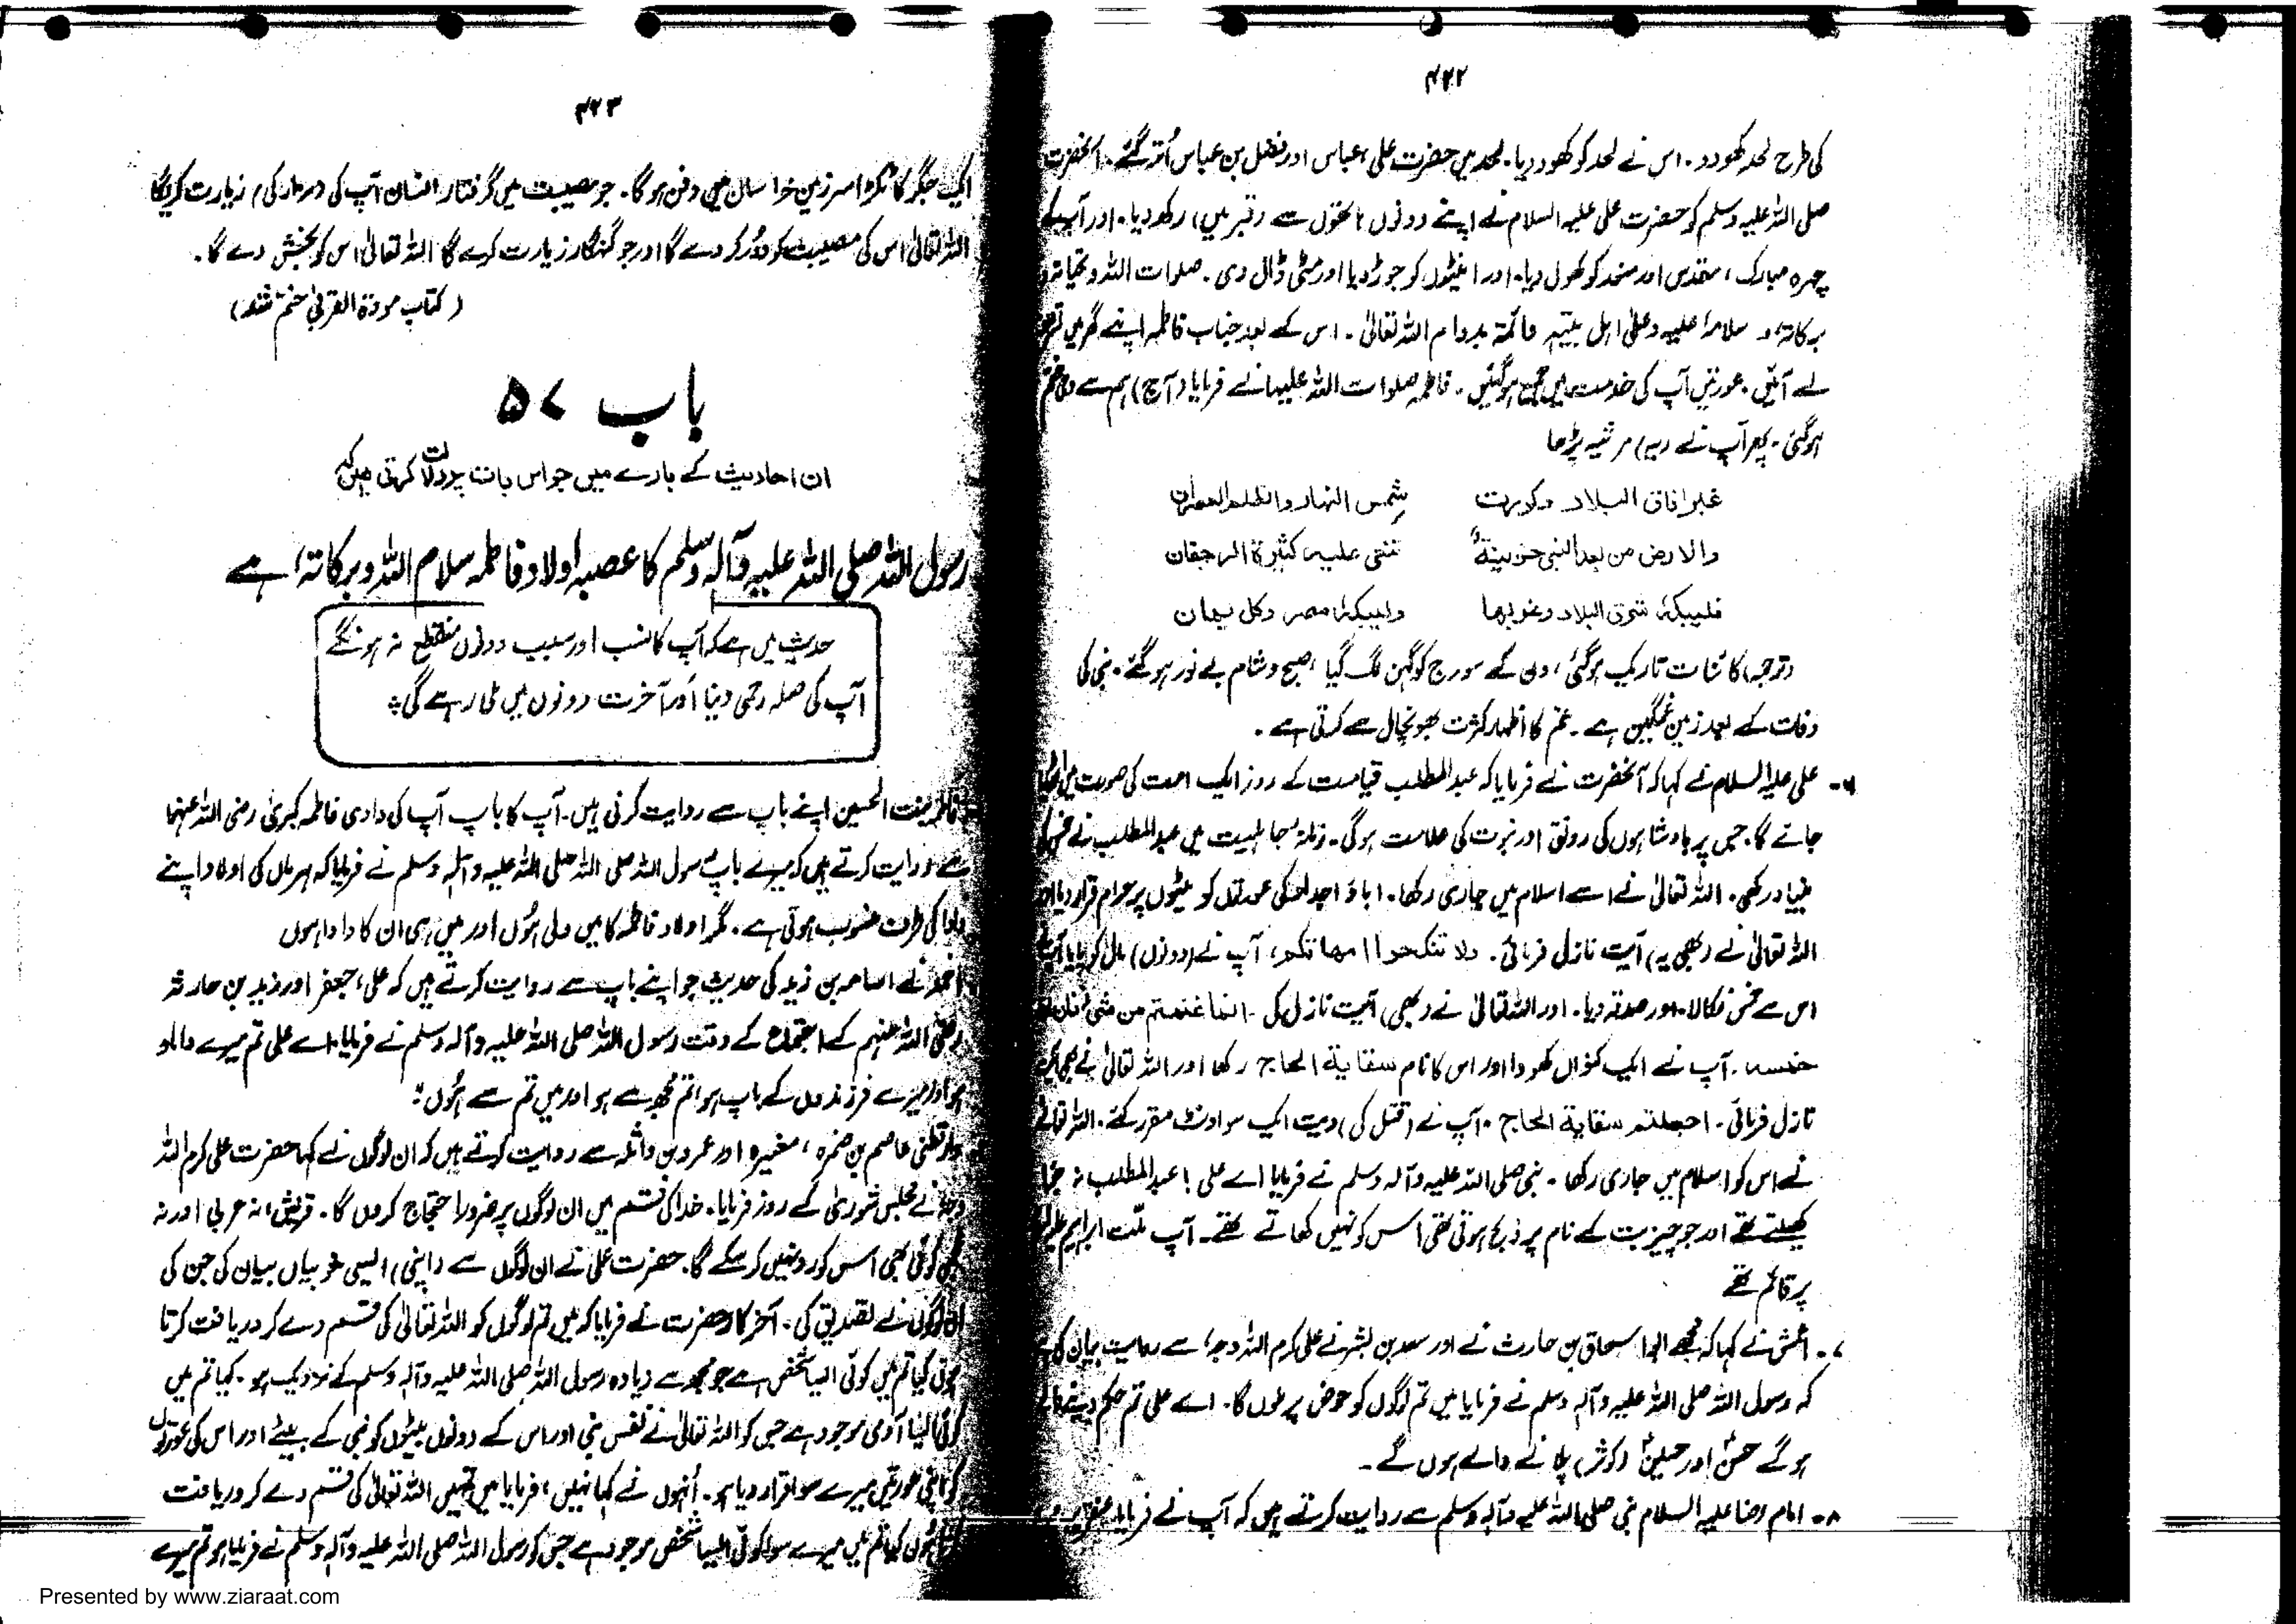 ۴۲۲
کی طرح لحد کھودو۔ اس نے لحد کو کھود دیا۔ لحد میں حضرت علی، عباس اور فضل بن عباس اُتر گئے۔ آنحضرت
صلی اللہ علیہ وسلم کو حضرت علی علیہ السلام نے اپنے دونوں ہاتھوں سے (قبر میں) رکھ دیا۔ اور آپ کے
چہرہ مبارک، مقدس اور منور کو کھول دیا۔ اور اینٹوں کو جوڑ دیا اور مٹی ڈال دی۔ صلوات اللہ و تحیاتہ و
برکاتہ، و سلامہ علیہ وعلیٰ اہل بیتہ دائمۃ بدوام اللہ تعالیٰ۔ اس کے بعد جناب فاطمہ اپنے گھر میں
لے آئیں۔ عورتیں آپ کی خدمت میں جمع ہوگئیں۔ فاطمہ صلوات اللہ علیہا نے فرمایا (آج) ہم سے وحی ختم
ہوگئی۔ پھر آپ نے (یہ) مرثیہ پڑھا
غبر افاق البلاد وکورت شمس النہار واظلم العصران
والارض من بعد النبی حزینۃٌ علیہ کثیرۃ الرجفان
فلیبکہٗ شرق البلاد وغربها ولیبکہٗ مصر وکل یمان
(ترجمہ) کائنات تاریک ہوگئی، دن کے سورج کو گہن لگ گیا، صبح و شام بے نور ہو گئے۔ نبی کی
وفات کے بعد زمین غمگین ہے۔ غم کا اظہار کثرت بھونچال سے کرتی ہے۔
۶۔ علی علیہ السلام نے کہا کہ آنحضرت نے فرمایا کہ عبدالمطلب قیامت کے روز ایک امت کی صورت میں اٹھایا
جائے گا۔ جس پر بادشاہوں کی رونق اور نبوت کی علامت ہوگی۔ زمانہ جاہلیت میں عبدالمطلب نے خمس کی
بنیاد رکھی۔ اللہ تعالیٰ نے اسے اسلام میں جاری رکھا۔ اباؤ اجداد کی عورتوں کو بیٹوں پر حرام قرار دیا اور
اللہ تعالیٰ نے (بھی یہ) آیت نازل فرمائی۔ ولا تنکحوا امهاتکم، آپ نے (دونوں) مال کو پایا آپ نے
اس سے خمس نکالا۔ اور صدقہ دیا۔ اور اللہ تعالیٰ نے (بھی) آیت نازل کی۔ انما غنمتم من شئ فان للہ
خمسہ۔ آپ نے ایک کنواں کھودا اور اس کا نام سقایۃ الحاج رکھا اور اللہ تعالیٰ نے بھی
نازل فرمائی۔ اجعلتم سقایۃ الحاج۔ آپ نے (قتل کی) دیت ایک سو اونٹ مقرر کئے۔ اللہ تعالیٰ
نے اس کو اسلام میں جاری رکھا۔ نبی صلی اللہ علیہ وآلہ وسلم نے فرمایا اے علی! عبدالمطلب نہ جوا
کھیلتے تھے اور جو چیز بت کے نام پر ذبح ہوتی تھی اس کو نہیں کھاتے تھے۔ آپ ملت ابراہیم علیہ
پر قائم تھے
۷۔ اعمش نے کہا کہ مجھے ابو اسحاق بن حارث نے اور سعد بن بشر نے علی کرم اللہ وجہہٗ سے روایت بیان کی ہے
کہ رسول اللہ صلی اللہ علیہ وآلہ وسلم نے فرمایا میں تم لوگوں کو حوض پر ملوں گا۔ اے علی تم حکم دینے والے
ہو گے حسنؑ اور حسینؑ (کوثر) پلانے والے ہوں گے۔
۸۔ امام رضا علیہ السلام نبی صلی اللہ علیہ وآلہ وسلم سے روایت کرتے ہیں کہ آپ نے فرمایا عنقریب
۴۲۳
ایک جگر کا ٹکڑا سرزمین خراسان میں دفن ہوگا۔ جو مصیبت میں گرفتار انسان آپ کی زیارت کریگا
اللہ تعالیٰ اس کی مصیبت کو دُور کر دے گا اور جو گنہگار زیارت کرے گا اللہ تعالیٰ اس کو بخش دے گا۔
(کتاب مودۃ القربیٰ ختم شد)
باب ۵۷
ان احادیث کے بارے میں جو اس بات پر دلالت کرتی ہیں کہ
رسول اللہ صلی اللہ علیہ وآلہ وسلم کا عصبہ اولاد فاطمہ سلام اللہ وبرکاتہٗ ہے
حدیث میں ہے کہ آپ کا نسب اور سبب دونوں منقطع نہ ہونگے
آپ کی صلہ رحمی دنیا اور آخرت دونوں میں ملی رہے گی۔
فاطمہ بنت الحسین اپنے باپ سے روایت کرتی ہیں۔ آپ کا باپ آپ کی دادی فاطمہ کبریٰ رضی اللہ عنہما
سے روایت کرتے ہیں کہ میرے باپ رسول اللہ صلی اللہ صلی اللہ علیہ وآلہ وسلم نے فرمایا کہ ہر ماں کی اولاد اپنے
دادا کی طرف منسوب ہوتی ہے۔ مگر اولاد فاطمہ کا میں ولی ہُوں اور میں ہی ان کا دادا ہوں
احمد نے اسامہ بن زید کی حدیث جو اپنے باپ سے روایت کرتے ہیں کہ علی، جعفر اور زید بن حارثہ
رضی اللہ عنہم کے اجتماع کے وقت رسول اللہ صلی اللہ علیہ وآلہ وسلم نے فرمایا۔ اے علی تم میرے داماد
ہو اور میرے فرزندوں کے باپ ہو تم مجھ سے ہو اور میں تم سے ہُوں۔
دارقطنی عاصم بن ضمرہ، مغیرہ اور عمرو بن واثلہ سے روایت کرتے ہیں کہ ان لوگوں نے کہا حضرت علی کرم اللہ
وجہہ نے مجلس شوریٰ کے روز فرمایا۔ خدا کی قسم میں ان لوگوں پر ضرور احتجاج کروں گا۔ قریشی، نہ عربی اور نہ
عجمی کوئی بھی اس کو رد نہیں کر سکے گا۔ حضرت علی نے ان لوگوں سے (اپنی) ایسی خوبیاں بیان کی جن کی
ان لوگوں نے تصدیق کی۔ آخر کار حضرت نے فرمایا کہ میں تم لوگوں کو اللہ تعالیٰ کی قسم دے کر دریافت کرتا
ہوں کیا تم میں کوئی ایسا شخص ہے جو مجھ سے زیادہ رسول اللہ صلی اللہ علیہ وآلہ وسلم کے نزدیک ہو۔ کیا تم میں
کوئی ایسا آدمی موجود ہے جس کو اللہ تعالیٰ نے نفس نبی اور اس کے دونوں بیٹوں کو نبی کے بیٹے اور اس کی عورتوں
کو اپنی عورتیں میرے سوا قرار دیا ہو۔ اُنہوں نے کہا نہیں، فرمایا میں تمہیں اللہ تعالیٰ کی قسم دے کر دریافت
کرتا ہُوں کیا تم میں میرے سوا کوئی ایسا شخص موجود ہے جس کو رسول اللہ صلی اللہ علیہ وآلہ وسلم نے فرمایا ہو تم میرے
Presented by www.ziaraat.com